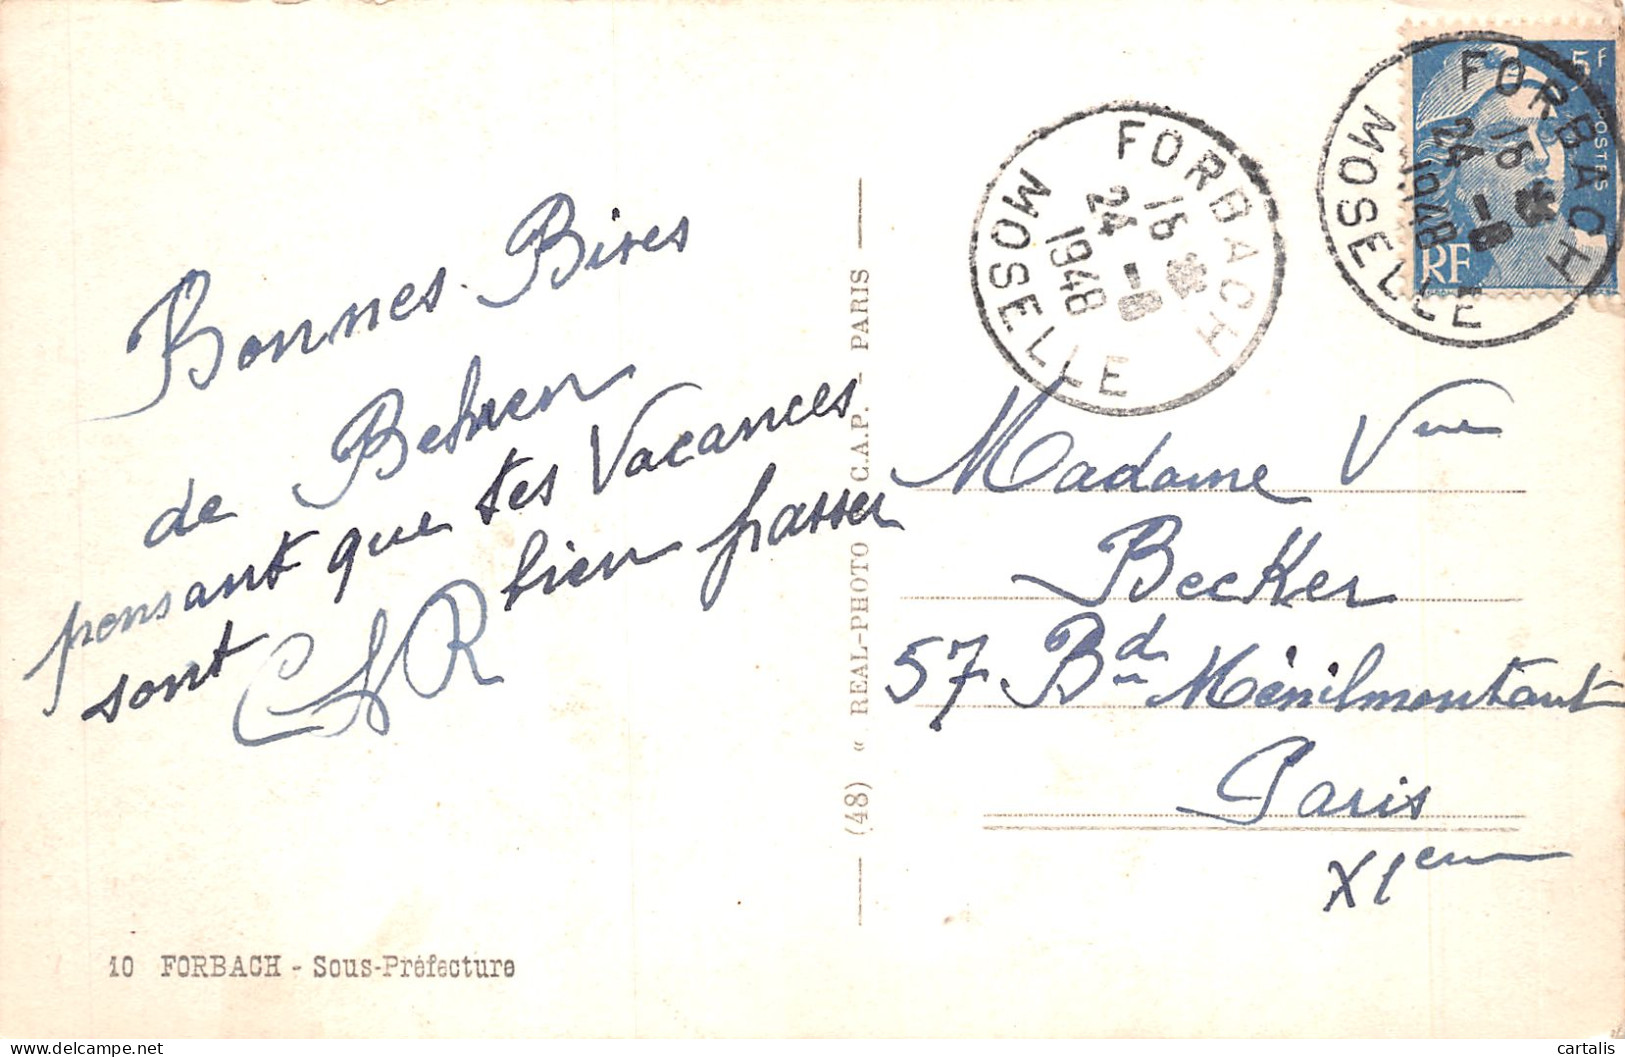 Bonnes Bises
de Behren
pensant que tes Vacances
sont bien passer
10 FORBACH - Sous-Préfecture
(48) « REAL-PHOTO » C.A.P. - PARIS
FORBACH
16
24 -8
1948
MOSELLE
5F
POSTES
RF
FORBACH
16
24 -8
1948
MOSELLE
Madame Vve
Becker
57 Bd Ménilmontant
Paris
XIem
cartalis